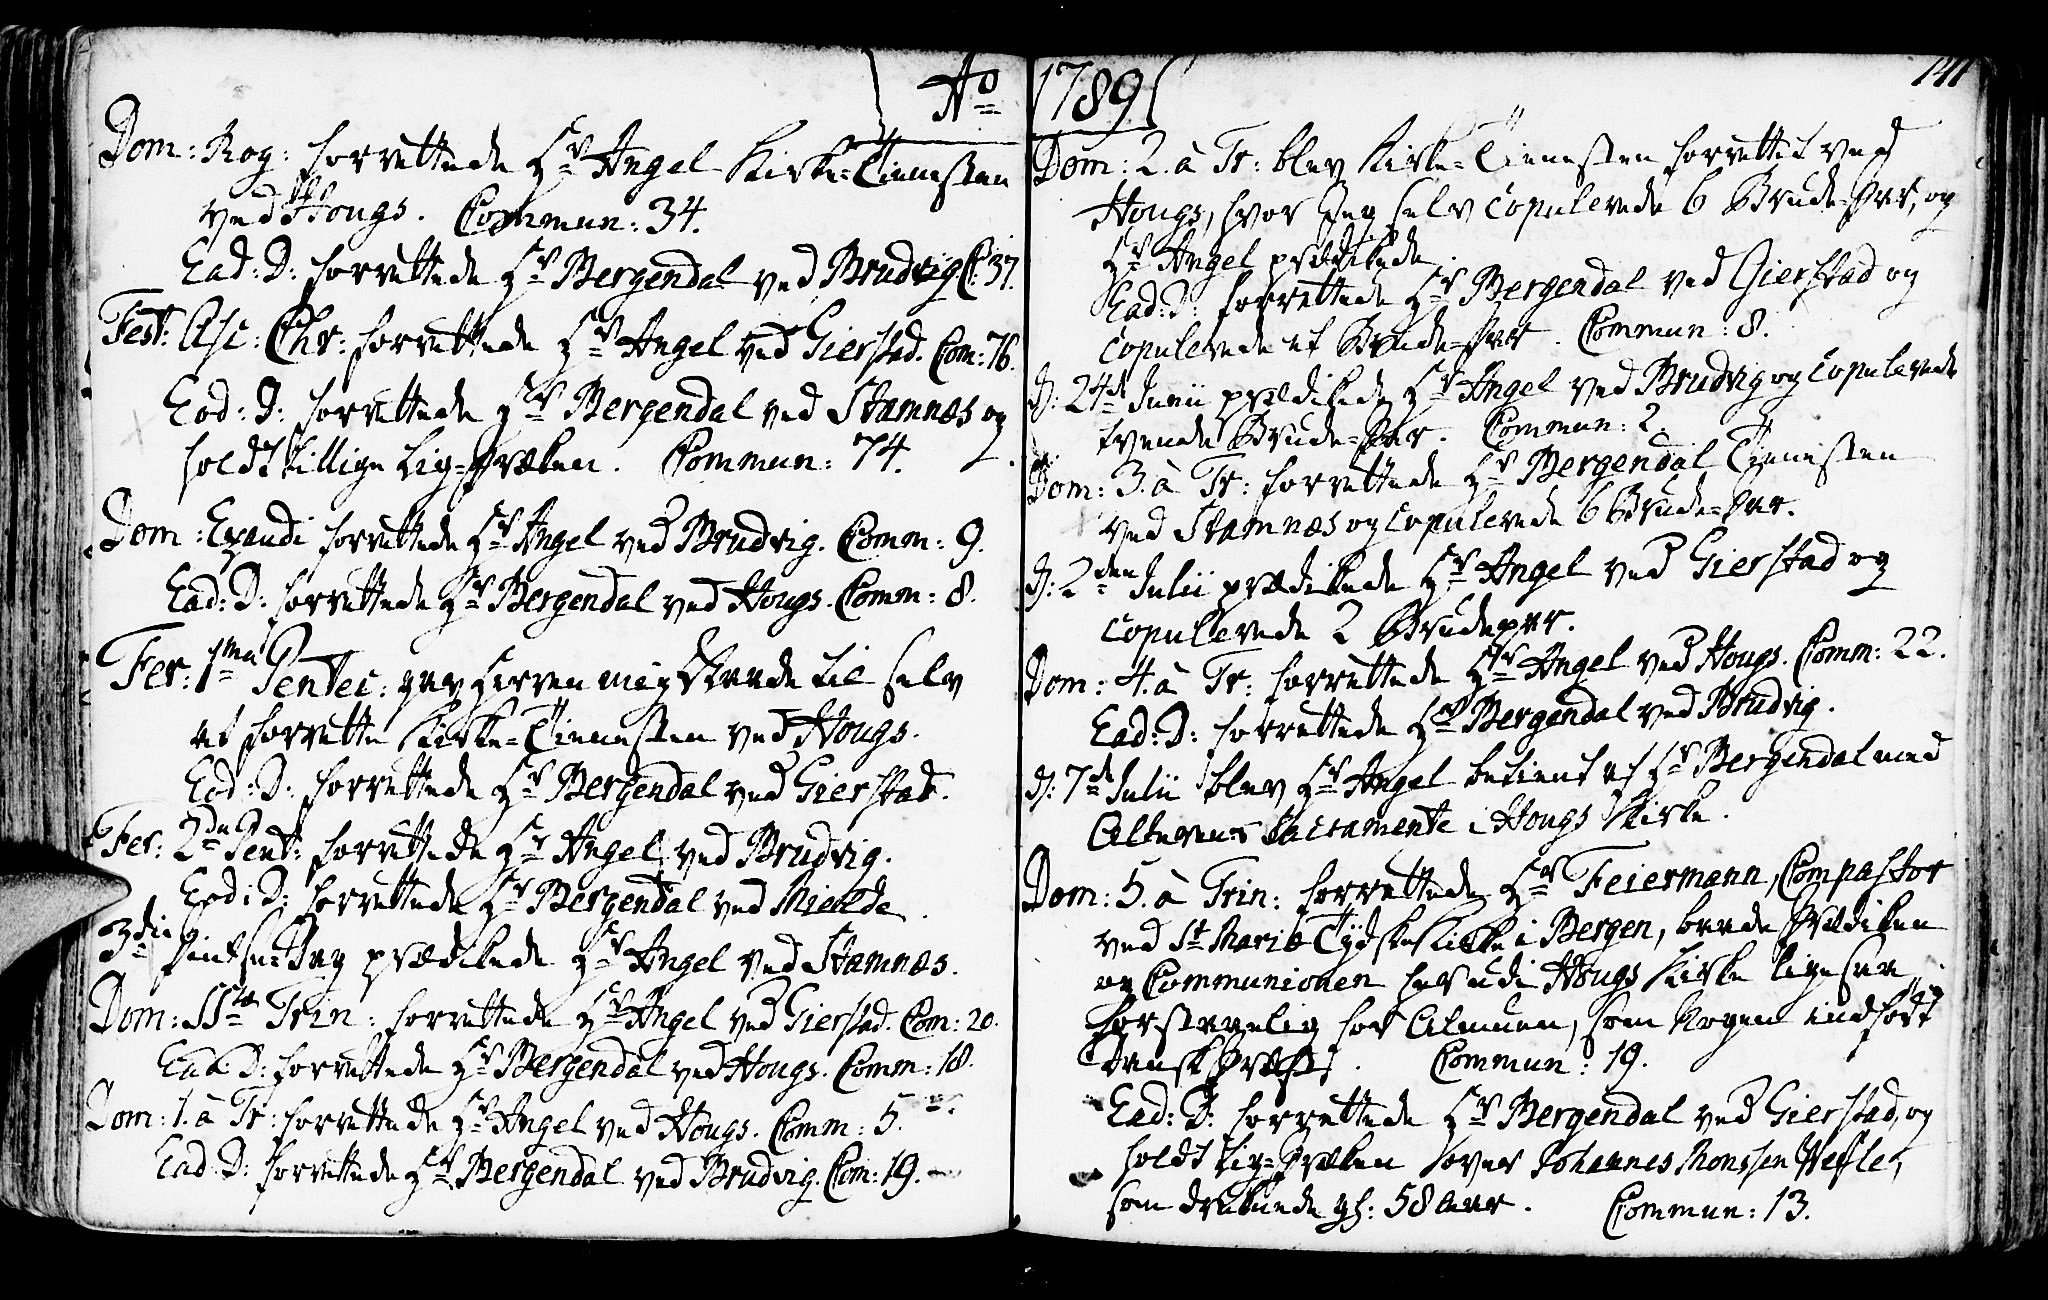 Ao
Dom: Rog: forrettede Hr Angel Kirke-Tienesten
ved Hougs. Commun: 34.
Ead: D: forrettede Hr Bergendal ved Brudvig C: 37.
Fest: Asc: Chr: forrettede Hr Angel ved Gierstad. Com: 76.
Eod: D: forrettede Hr Bergendal ved Stamnæs og
holdt tillige Lig-Præken. Commun: 74.
Dom: Exaudi forrettede Hr Angel ved Brudvig. Comm: 9.
Ead: D: forrettede Hr Bergendal ved Hougs. Comm: 8.
Fer: 1ma Pentec: gav Herren mig Naade til selv
at forrette Kirke-Tienesten ved Hougs.
Eod: D: forrettede Hr Bergendal ved Gierstad.
Fer: 2da Pent: forrettede Hr Angel ved Brudvig.
Eod: D: forrettede Hr Bergendal ved Mielde.
3die Pintse-Dag prædikede Hr Angel ved Stamnæs.
Dom: SSte Trin: forrettede Hr Angel ved Gierstad. Com: 20.
Ead: D: forrettede Hr Bergendal ved Hougs. Comm: 18.
Dom: 1. à Tr: forrettede Hr Angel ved Hougs. Comm: 5.
Ead: D: forrettede Hr Bergendal ved Brudvig. Com: 19.
1789
141
Dom: 2. à Tr: blev Kirke-Tienesten forrettet ved
Hougs, hvor Jeg selv copulerede 6 Brude-Par, og
Hr Angel prædikede.
Ead: D: forrettede Hr Bergendal ved Gierstad og
copulerede et Brude-Par. Commun: 8.
D: 24de Junii prædikede Hr Angel ved Brudvig og copulerede
tvende Brude-Par. Commun: 2.
Dom: 3. à Tr: forrettede Hr Bergendal Tienesten
ved Stamnæs og copulerede 6 Brude-Par.
D: 2den Julii prædikede Hr Angel ved Gierstad og
copulerede 2 Brudepar.
Dom: 4. à Tr: forrettede Hr Angel ved Hougs. Comm: 22.
Ead: D: forrettede Hr Bergendal ved Brudvig.
D: 7de Julii blev Hr Angel betient af Hr Bergendal med
Alterens Sacramente i Hougs Kirke.
Dom: 5. à Trin: forrettede Hr Feiermann, Compastor
ved St Mariæ Tydske Kirke i Bergen, baade Prædiken
og Communionen her udi Hougs Kirke ligesaa
forstaaelig for Almuen, som Nogen indfødt
dansk Præst. Commun: 19.
Ead: D: forrettede Hr Bergendal ved Gierstad, og
holdt Lig-Præken over Johannes Monssen
som druknede gl: 58 aar. Commun: 13.